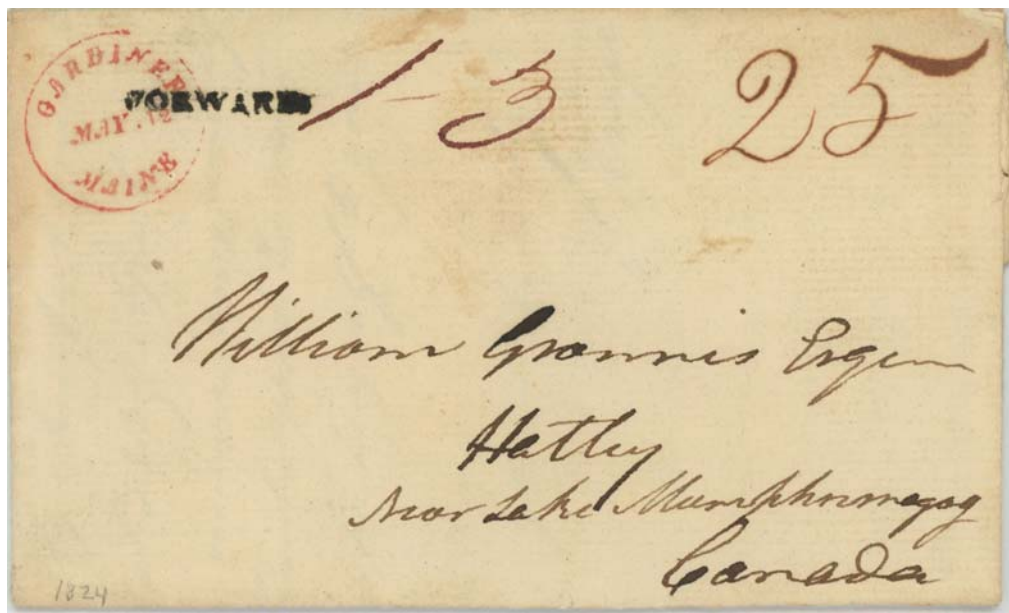 GARDINER
MAY. 12
MAINE
FORWARD
1-3
25
William Grannis Esqr
Hatley
Near Lake Memphremagog
Canada
1824